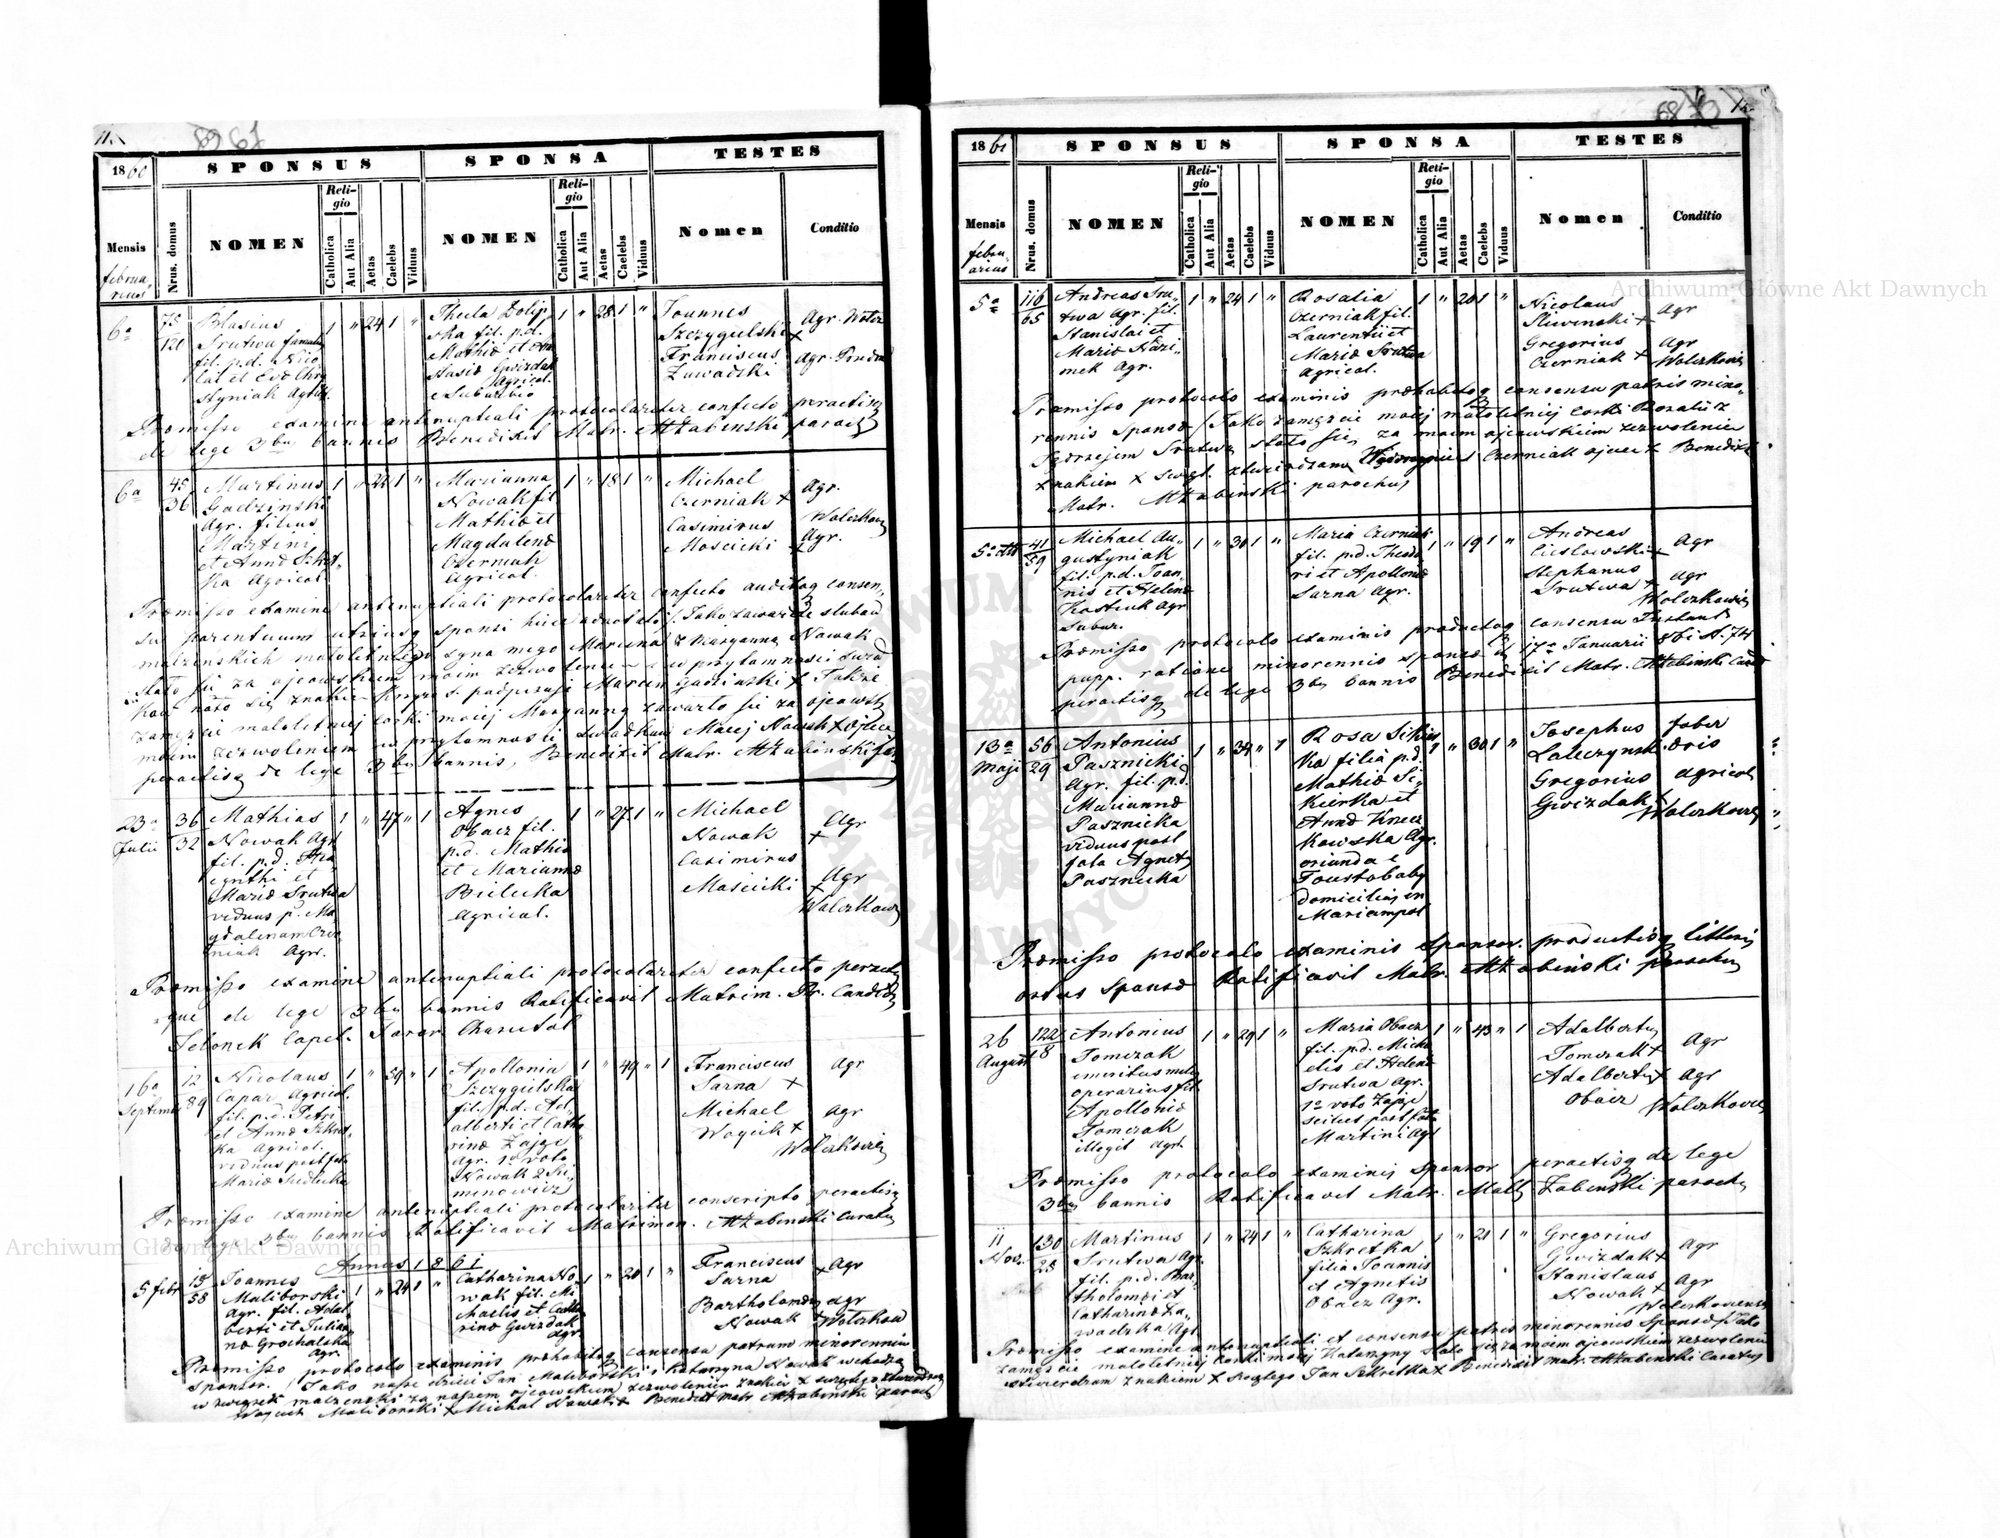 11.
69 61
1860
SPONSUS
SPONSA
TESTES
Mensis
februarius
Nrus. domus
NOMEN
Religio
Catholica
Aut Alia
Aetas
Caelebs
Viduus
NOMEN
Religio
Catholica
Aut Alia
Aetas
Caelebs
Viduus
Nomen
Conditio
6a
75
121
Blasius
Srutwa famulus
fil. p.d. Nico
lai et Evæ Chry
styniak Agric.
1 " 24 1 "
Thecla Dolij
ska fil. p.d.
Mathiæ et An
stasiæ Gwizdak
Agricol.
e Suburbio
1 " 28 1 "
Joannes
Szczygielski +
Franciscus
Zawadzki
Agr.
Agr.
Præmisso examine antenuptiali protocolariter confecto peractisq
de lege 3bus bannis Benedixit Matr. MŻabinski paroch
6a
45
36
Martinus
Gadzinski
Agr. filius
Martini
et Annæ Szkret
ka Agricol.
1 " 22 1 "
Marianna
Nowak fil
Mathiæ et
Magdalenæ
Czerniak
Agricol.
1 " 18 1 "
Michael
Czerniak +
Casimirus
Moscicki +
Agr.
Wolczkow
Agr.
Præmisso examine antenuptiali protocolariter confecto auditoq consen-
su parentuum utriusq sponsi hice adnotato /: Jako zawarcie slubow
malzenskich maloletniego syna mego Marcina z Maryanną Nowak
stało się za ojcowskiem moim zezwoleniem w przytomnosci swiad
kow na to się znakiem krzyza s. podpisuje Marcin Gadzinski + Takze
zamęzcie maloletniej corki mojej Maryanny zawarto się za ojcowsk
moim zezwoleniem w przytomnosci swiadkow Maciej Nowak + Ojciec
peractisq de lege 3bus bannis, Benedixit Matr. MŻabinski
23a
Julii
36
32
Mathias
Nowak Agr
fil. p.d. Hya
cynthi et
Mariæ Srutwa
viduus p. Ma
gdalenam Czer
niak Agr.
1 " 47 " 1
Agnes
Obacz fil.
p.d. Mathiæ
et Mariannæ
Bielecka
Agricol.
1 " 27 1 "
Michael
Nowak +
Casimirus
Moscicki +
Agr
Agr
Wolczkow
Præmisso examine antenuptiali protocolariter confecto peractis
que de lege 3bus bannis Ratificavit Matrim. Fr. Candid
Jelonek Capel.
16a
Septemb
12
89
Nicolaus
Capar Agricol.
fil. p.d. Petri
et Annæ Szkret
ka Agricol.
viduus post fata
Mariæ Siedlecka
1 " 59 " 1
Apollonia
Szczygielska
fil. p.d. Ad
alberti et Catha
rinæ Zajze
Agr. 1o voto
Nowak 2 Sie
minowicz
1 " 49 " 1
Franciscus
Sarna +
Michael
Woycik +
Agr
Agr
Wolczkowiec
Præmisso examine antenuptiali protocolariter conscripto peractisq
de lege 3bus bannis Ratificavit Matrimon. MŻabinski Curatus
Annus 1861
5 febr
19
58
Joannes
Maliborski
Agr. fil. Adal
berti et Julian
næ Grochalska
Agr.
1 " 24 1 "
Catharina No
wak fil. Mi
chaelis et Catha
rinæ Gwizdak
Agr.
1 " 20 1 "
Franciscus
Sarna +
Bartholomæus
Nowak +
Agr
Agr
Wolczkow
Præmisso protocolo examinis præhabitoq consensu patrum minorennium
Sponsor. /: Jako nasze dzieci Jan Maliborski i Katarzyna Nowak wchodzą
w związek malzenski za naszem ojcowskiem zezwoleniem znakiem + swiętego stwierdzamy
Woyciech Maliborski + Michał Nowak + Benedixit Matr MŻabinski paroch
68
12.
1861
SPONSUS
SPONSA
TESTES
Mensis
februarius
Nrus. domus
NOMEN
Religio
Catholica
Aut Alia
Aetas
Caelebs
Viduus
NOMEN
Religio
Catholica
Aut Alia
Aetas
Caelebs
Viduus
Nomen
Conditio
5a
116
65
Andreas Sru-
twa Agr. fil.
Stanislai et
Mariæ Kazi-
mek Agr.
1 " 24 1 "
Rosalia
Czerniak fil.
Laurentii et
Mariæ Srutwa
Agricol.
1 " 20 1 "
Nicolaus
Sliwinski +
Gregorius
Czerniak +
Agr
Agr
Wolczkowiec
Præmisso protocolo examinis præhabitoq consensu patris mino-
rennis Sponsæ /: Jako zamęzcie mojej małoletniej Corki Rozalii z
Jędrzejem Srutwą stało się za moim ojcowskiem zezwoleniem
znakiem + swięt. stwierdzam Wawrzyniec Czerniak ojciec + Benedixit
Matr. MŻabinski parochus
5a dto
41
59
Michael Au-
gustyniak
fil. p.d. Joan-
nis et Helenæ
Kostiuk Agr
Subur.
1 " 30 1 "
Maria Czerniak
fil. p.d. Theodo
ri et Apolloniæ
Sarna Agr.
1 " 19 1 "
Andreas
Cieslowski +
Stephanus
Srutwa +
Agr
Agr
Wolczkowiec
Præmisso protocolo examinis productoq consensu Instant
pupp. ratione minorennis sponsæ d. 17a Januarii 861 N. 74
peractisq de lege 3bus bannis Benedixit Matr. MŻabinski Curat
13a
Maji
56
29
Antonius
Pasznicki
Agr. fil. p.d.
Mariannæ
Pasznicka
viduus post
fata Agnetis
Pasznicka
1 " 34 " 1
Rosa Sikier
ka filia p.d.
Mathiæ Si-
kierka et
Annæ Knecz
kowska Agr.
oriunda e
Toustobaby
domicilias in
Mariampol
1 " 30 1 "
Josephus
Laliczynski
Gregorius
Gwizdak +
faber
oris
agricol
Wolczkowiec
Præmisso protocolo examinis Sponsor. productisq litteris
ortus Sponsæ Ratificavit Matr. MŻabinski parochus
26
August
122
8
Antonius
Tomczak
emeritus miles
operarius fil.
Apolloniæ
Tomczak
illegit Agr.
1 " 29 1 "
Maria Obacz
fil. p.d. Micha
elis et Helenæ
Srutwa Agr.
1o voto Zajze
scilus post fata
Martini Agr
1 " 43 " 1
Adalbertus
Tomczak +
Adalbertus +
Obacz
Agr
Agr
Wolczkowiec
Præmisso protocolo examinis Sponsor peractisq de lege
3bus bannis Ratificavit Matr. Math Żabinski parochus
11
Nov.
130
25
Martinus
Srutwa Agr.
fil. p.d. Bar-
tholomæi et
Catharinæ Za-
wadzka Agr
1 " 24 1 "
Catharina
Szkretka
filia Joannis
et Agnetis
Obacz Agr.
1 " 21 1 "
Gregorius
Gwizdak +
Stanislaus
Nowak +
Agr
Agr
Wolczkowiec
Præmisso examine antenuptiali et consensu patris minorennis Sponsæ /: Jako
zamęzcie maloletniej corki mojej Katarzyny stało się za moim ojcowskiem zezwoleniem
stwierdzam znakiem + swiętego Jan Szkretka + Benedixit Matr MŻabinski Curatus
Archiwum Główne Akt Dawnych
Archiwum Główne Akt Dawnych